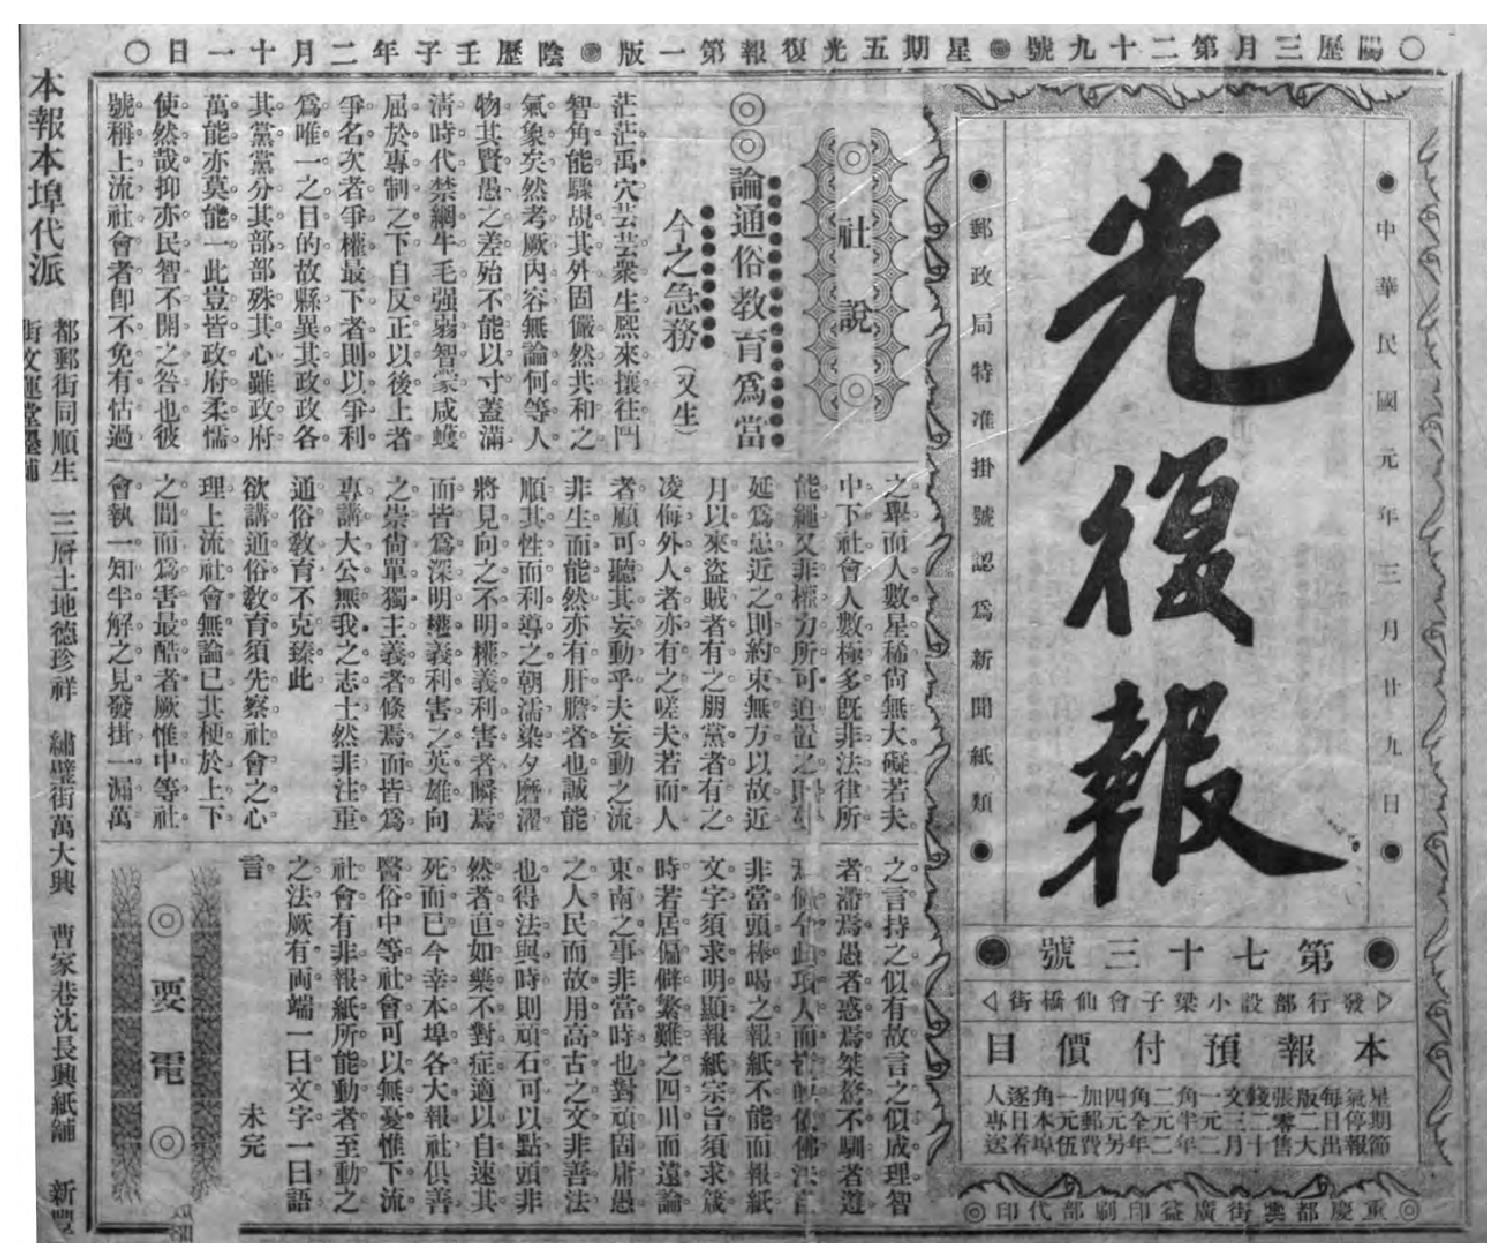 ○陽歷三月第二十九號◉星期五光復報第一版◉陰歷壬子年二月十一日○
●中華民國元年三月廿九日●
光復報
●郵政局特准掛號認爲新聞紙類●
●第七十三號●
▷發行部設小梁子會仙橋街◁
本報預付價目
星期節
氣停報
每日出
版二大
張零售
錢二十
文三月
一元二
角半年
二元二
角全年
四元另
加郵費
一元伍
角本埠
逐日着
人專送
◎重慶都郵街廣益印刷部代印◎
◎社說◎
◎◎論通俗教育爲當
今之急務(又生)
茫茫禹穴。芸芸衆生。熙來攘往。鬥
智角能。驟覘其外。固儼然共和之
氣象矣。然考厥內容。無論何等人
物。其賢愚之差。殆不能以寸。蓋滿
淸時代。禁網牛毛。强弱智蒙。咸蠖
屈於專制之下。自反正以後。上者
爭名。次者爭權。最下者則以爭利
爲唯一之目的。故縣異其政。政各
其黨。黨分其部。部殊其心。雖政府
萬能。亦莫能一。此豈皆政府柔懦
使然哉。抑亦民智不開之咎也。彼
號稱上流社會者。卽不免有怙過
之舉。而人數星稀。尙無大礙。若夫
中下社會。人數極多。旣非法律所
能繩。又非權力所可迫。置之則
延爲患。近之則約束無方。以故近
月以來。盜賊者有之。朋黨者有之。
凌侮外人者亦有之。嗟夫。若而人
者。顧可聽其妄動乎。夫妄動之流。
非生而能然。亦有肝膽者也。誠能
順其性而利導之。朝濡染夕磨濯。
將見向之不明權義利害者。瞬焉
而皆爲深明權義利害之英雄。向
之崇尙單獨主義者。倏焉而皆爲
專講大公無我之志士。然非注重
通俗教育。不克臻此
欲講通俗教育。須先察社會之心
理。上流社會無論已。其梗於上下
之間。而爲害最酷者。厥惟中等社
會。執一知半解之見。發掛一漏萬
之言。持之似有故。言之似成理。智
者滯焉。愚者惑焉。桀驁不馴者遵
非當頭棒喝之報紙不能。而報紙
文字須求明顯。報紙宗旨須求箴
時。若居偏僻繁難之四川。而遠論
東南之事。非當時也。對頑固庸愚
之人民。而故用高古之文。非善法
也。得法與時。則頑石可以點頭。非
然者。直如藥不對症。適以自速其
死而已。今幸本埠各大報社。俱善
醫俗。中等社會可以無憂。惟下流
社會。有非報紙所能動者。至動之
之法。厥有両端。一曰文字。一曰語
言。　未完
◎要電◎
本報本埠代派
都郵街同順生　三層土地德珍祥　繡璧街萬大興　曹家巷沈長興紙舖　新豐